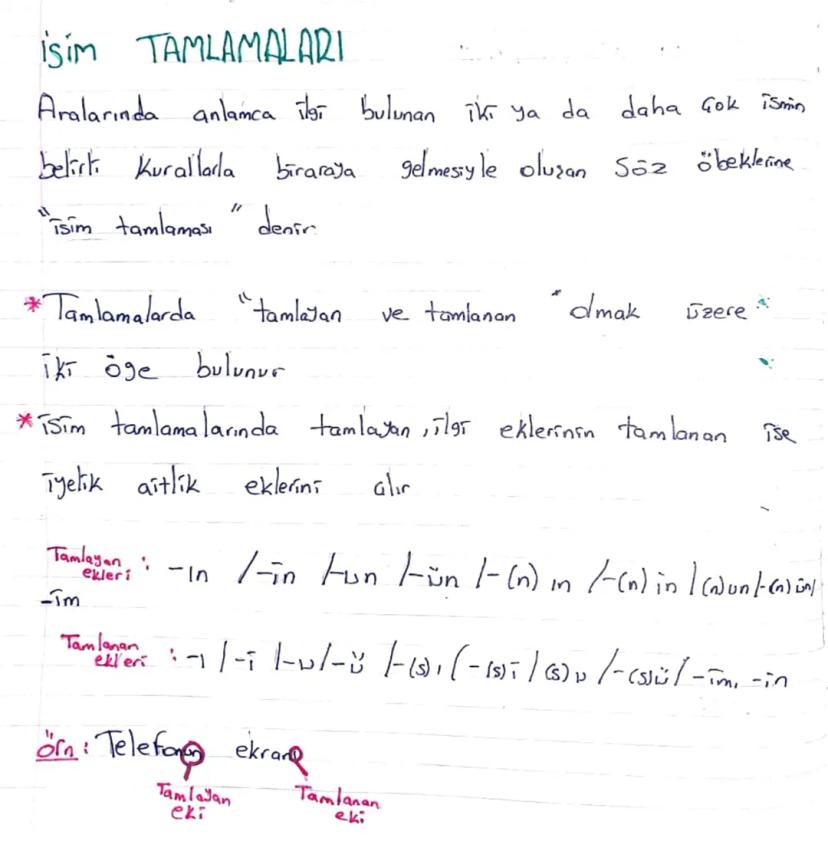 isim TAMLAMALARI
Aralarında anlamca ilgi bulunan iki ya da daha çok ismin
belirli kurallarla biraraya gelmesiyle oluşan söz öbeklerine
"isim tamlaması" denir
* Tamlamalarda "tamlayan ve tamlanan" olmak üzere
iki öge bulunur
* isim tamlamalarında tamlayan, ilgi eklerinin tamlanan ise
iyelik aitlik eklerini alır
Tamlayan ekleri : -ın /-in /-un /-ün /-(n) ın /-(n) in /(n)un/-(n) ün/
-im
Tamlanan ekleri : -ı /-i /-u/-ü /-(s)ı /-(s)i /(s)u /-(s)ü/ -im, -in
örn: Telefonun ekranı
Tamlayan eki Tamlanan eki